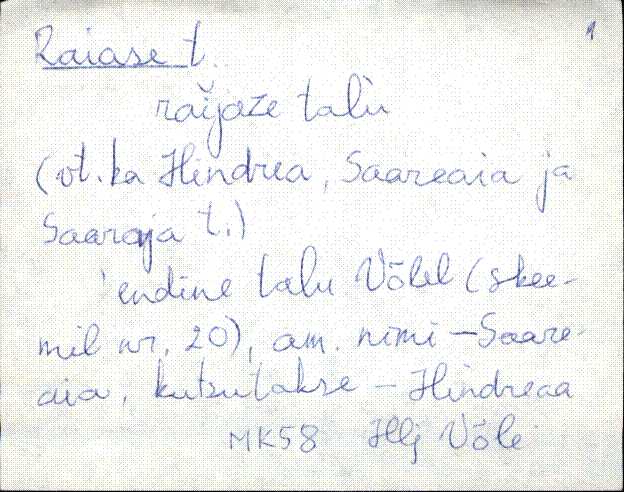 1
Raiase t.
raijaze talu
(vt. ka Hindrea, Saareaia ja
Saaraja t.)
endine talu Võlel (skee-
mil nr. 20), am. nimi – Saare-
aia, kutsutakse – Hindreaa
MK58 Hlj Võle